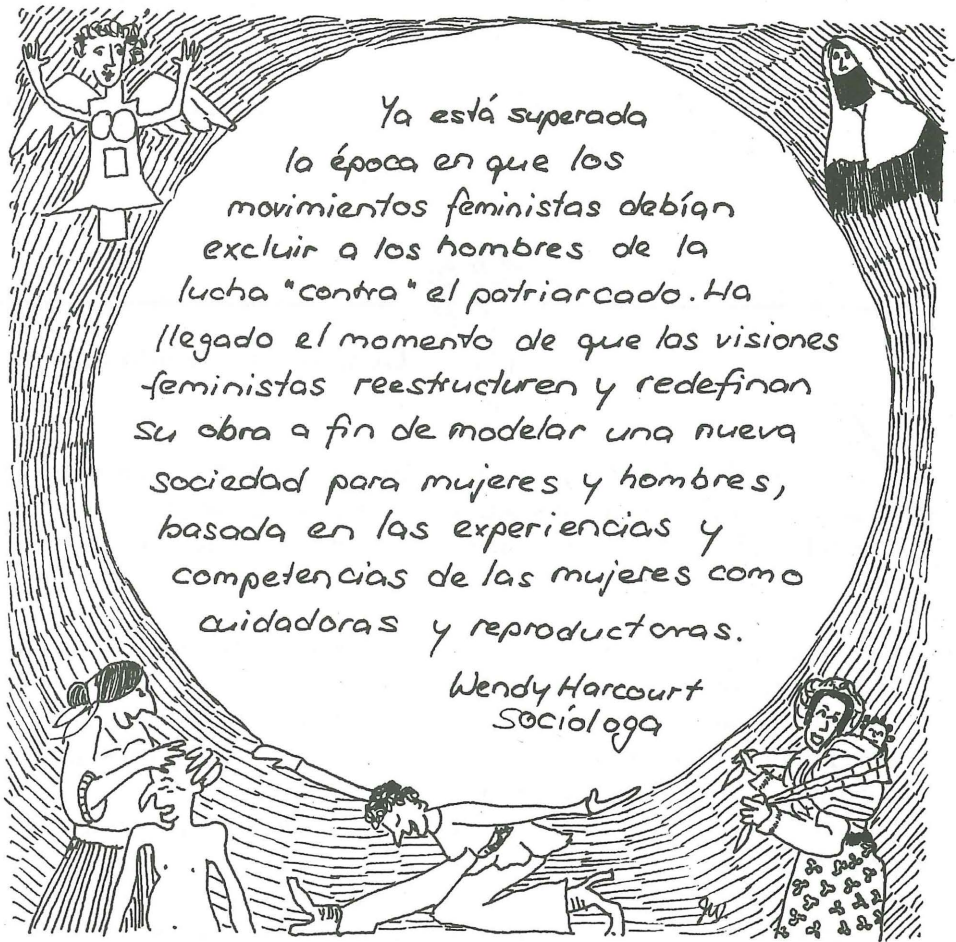 Ya está superada
la época en que los
movimientos feministas debían
excluir a los hombres de la
lucha "contra" el patriarcado. Ha
llegado el momento de que las visiones
feministas reestructuren y redefinan
su obra a fin de modelar una nueva
sociedad para mujeres y hombres,
basada en las experiencias y
competencias de las mujeres como
cuidadoras y reproductoras.
Wendy Harcourt
Socióloga